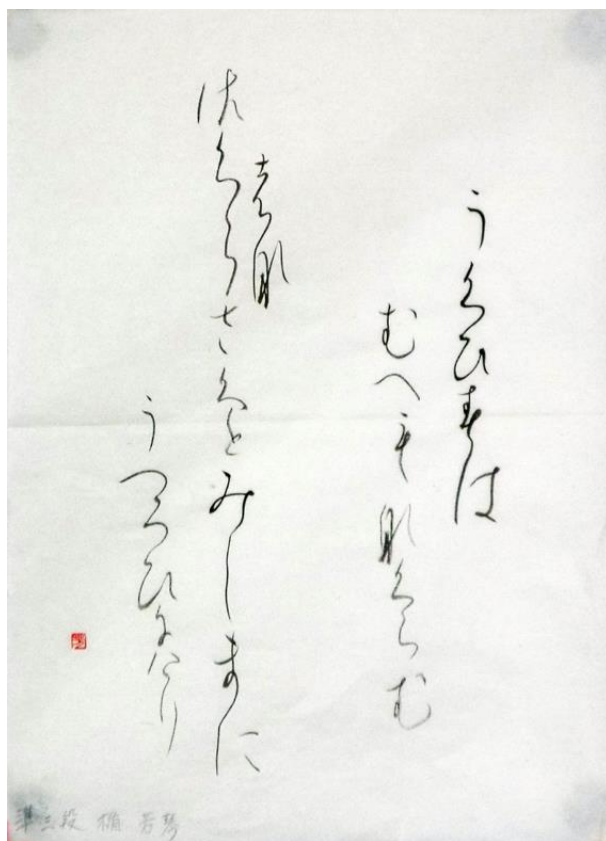 うくひすは
むへもなくらむ
はな
さくらさくとみしまに
うつろひにけり
準三段